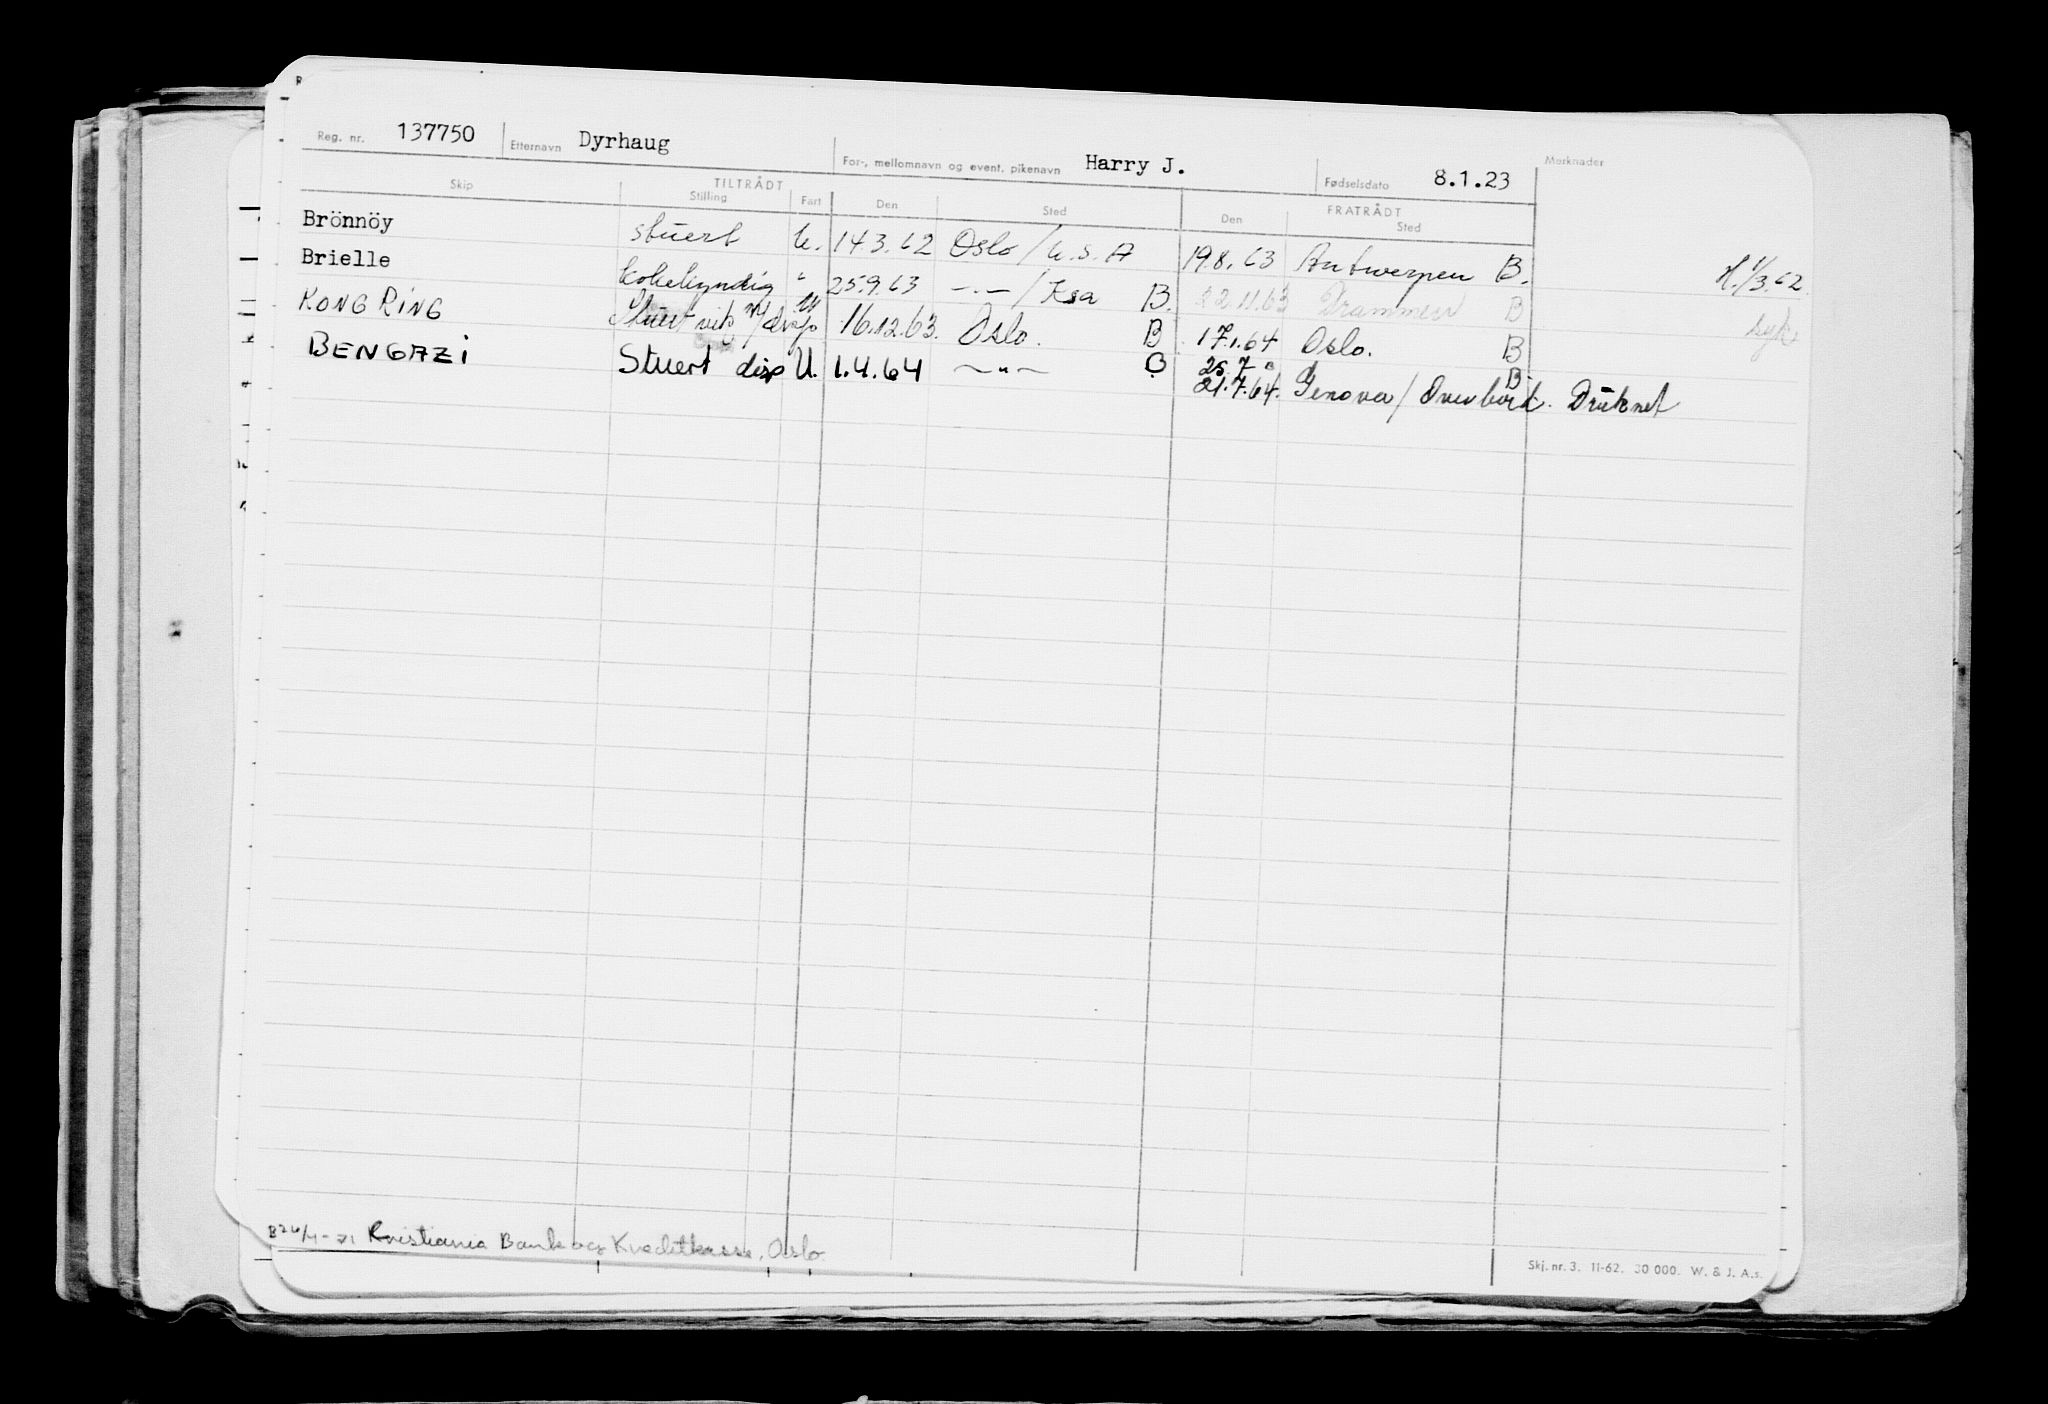 Reg. nr. 137750 Etternavn Dyrhaug For-, mellomnavn og event. pikenavn Harry J. Fødselsdato 8.1.23 Merknader
Skip TILTRÅDT Stilling Fart Den Sted FRATRÅDT Den Sted
Brönnöy stuert U. 14.3.62 Oslo / U.S.A 19.8.63 Antwerpen B. H. 1/3.62
Brielle kokekyndig " 25.9.63 —"— / Ksa B. 22.11.63 Drammen B syk
KONG RING Stuert vik m/ U 16.12.63. Oslo. B 17.1.64 Oslo. B
BENGAZI Stuert disp U. 1.4.64 —"— B 25.7 B
21.7.64. Genova / Overbord. Druknet
B 26/4-71 Kristiania Bank og Kreditkasse, Oslo
Skj. nr. 3. 11-62. 30 000. W. & J. A.s.